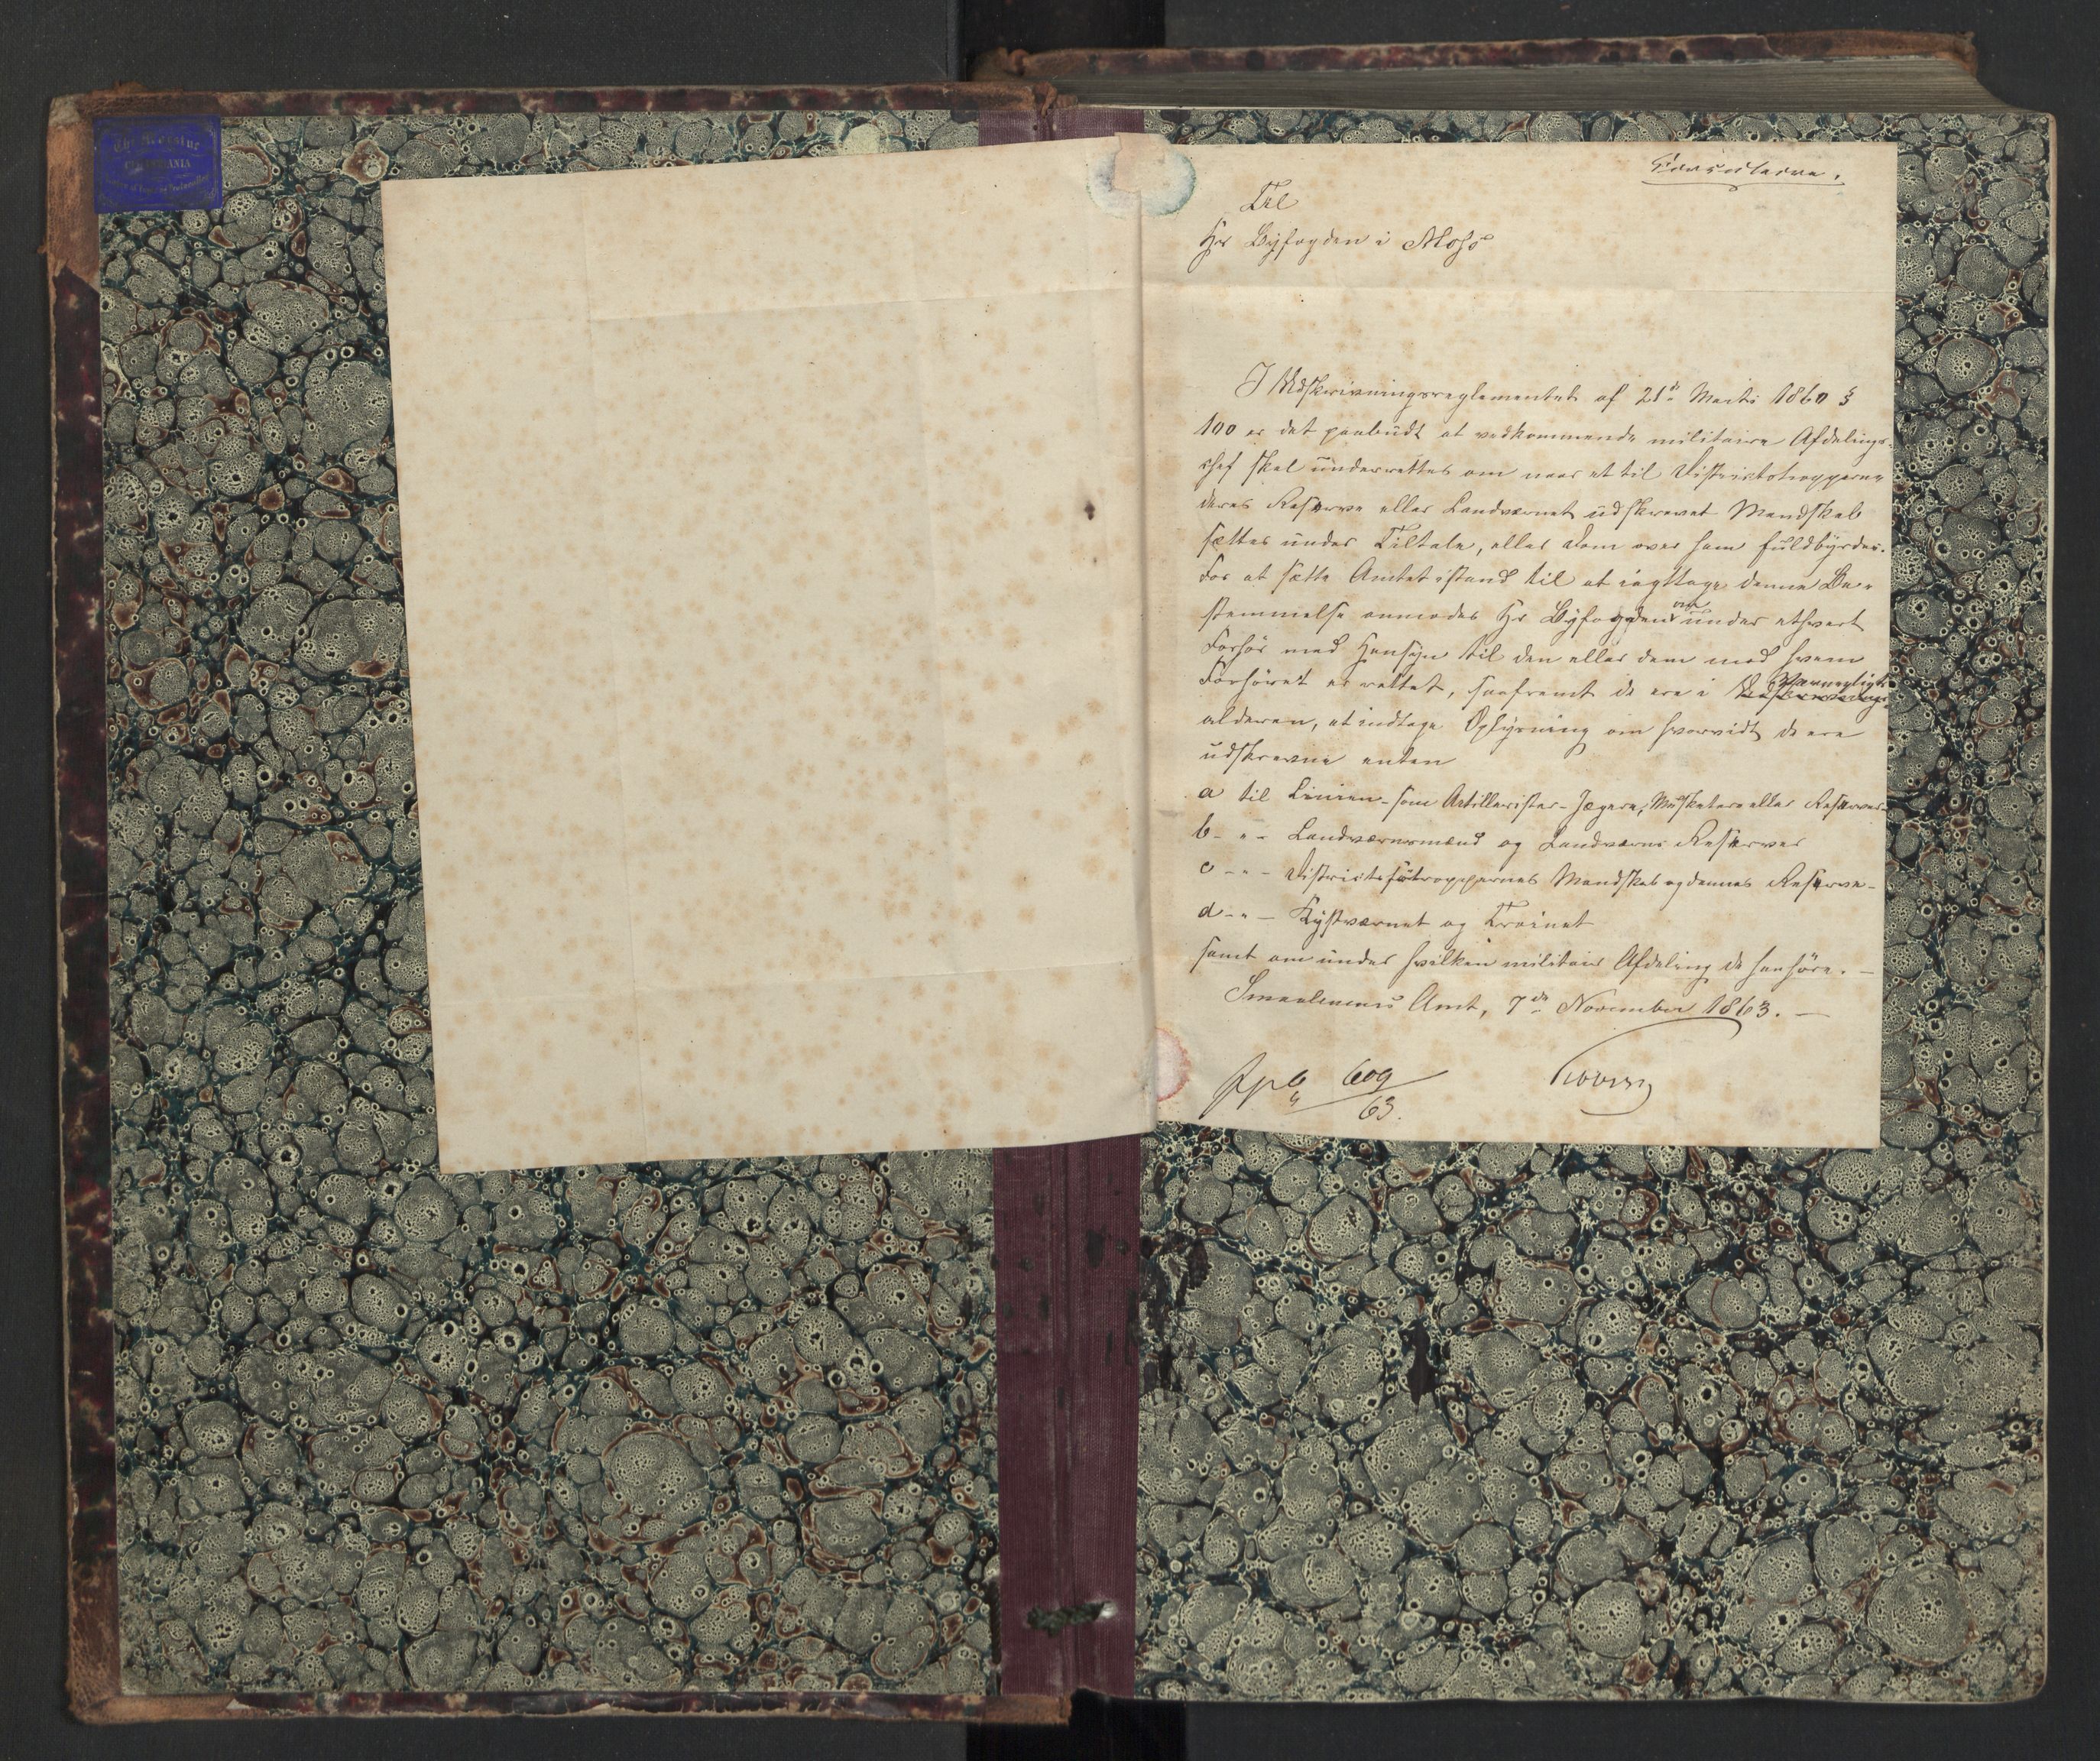 CHRISTIANIA
Circulaire.
Til
Hr Byfogden i Moss
I Udskrivningsreglementet af 21de Marts 1860 §
100 er det paabudt at vedkommende militaire Afdelings-
chef skal underrettes om naar et til Districtstropperne
deres Reserve eller Landværnet udskrevet Mandskab
sættes under Tiltale, eller Dom over ham fuldbyrdes.
For at sætte Amtet istand til at iagttage denne Be-
stemmelse anmodes Hr Byfogden om under ethvert
Forhör med Hensyn til den eller dem mod hvem
Forhöret er rettet, saafremt de ere i Udskrivnings Værnepligts-
alderen, at indtage Oplysning om hvorvidt de ere
udskrevne enten
a til Linien - som Artillerister - Jægere, Musketerer eller Reserver
b - " - Landværnsmænd og Landværns Reserver
c - " - Districtsfodtroppernes Mandskab og dennes Reserve -
d - " - Kystværnet og Trainet
samt om under hvilken militair Afdeling de henhöre. -
Smaalenenes Amt, 7de November 1863. -
609
63.